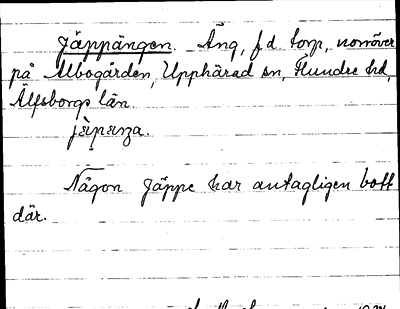 Jäppängen. Äng, f.d. torp, norröver
på Albogården, Upphärad sn, Flundre hd,
Älfsborgs län.
Någon Jäppe har antagligen bott
där.